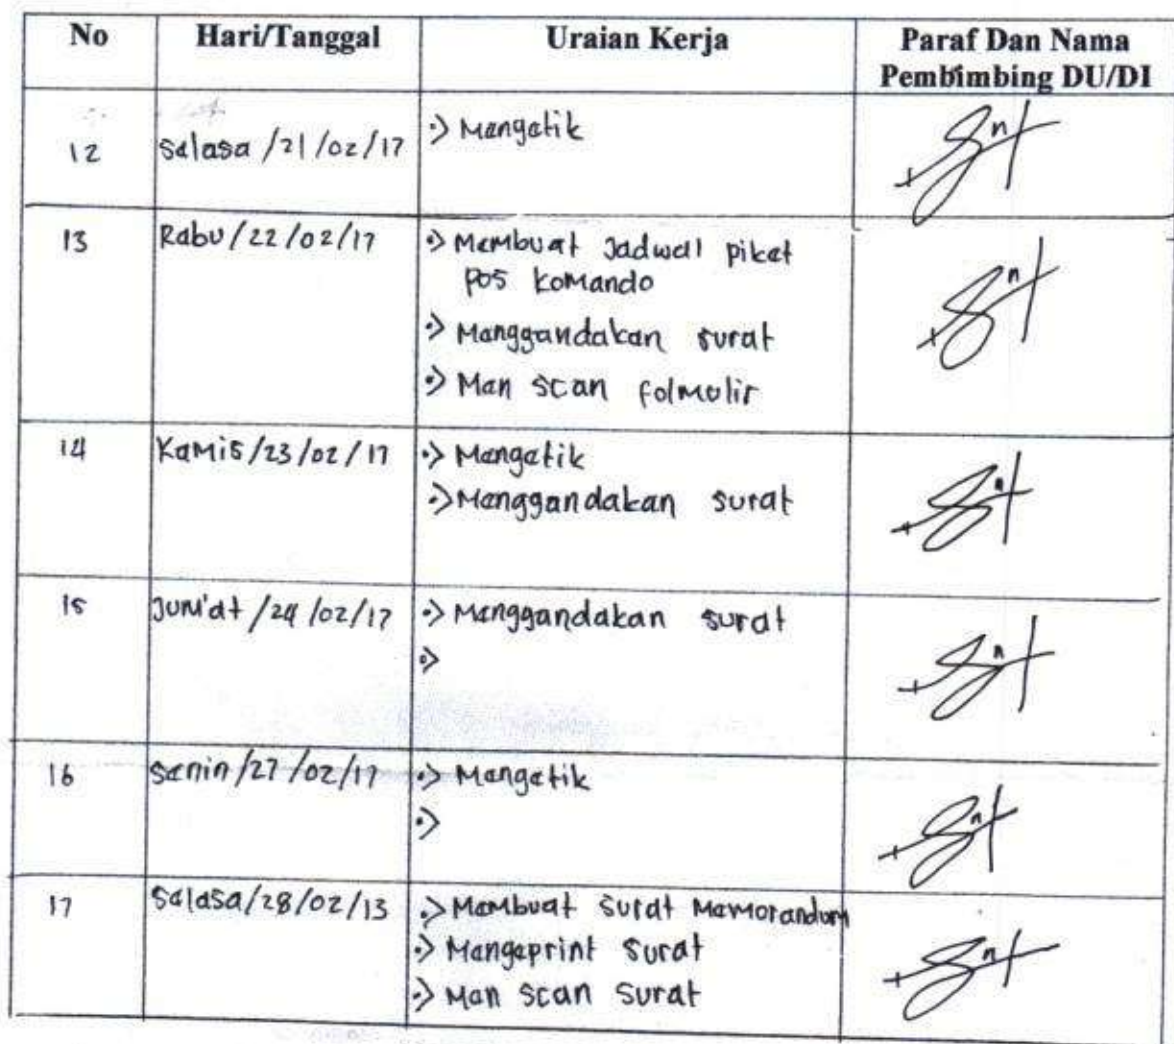 No Hari/Tanggal Uraian Kerja Paraf Dan Nama
Pembimbing DU/DI
12 Selasa /21/02/17 Mengetik
13 Rabu/22/02/17 Membuat Jadwal piket
pos komando
Menggandakan surat
Men scan folmulir
14 Kamis/23/02/17 Mengetik
Menggandakan surat
15 Jum'at /24/02/17 Menggandakan surat
16 Senin/27/02/17 Mengetik
17 Selasa/28/02/13 Membuat surat Memorandum
Mengeprint surat
Men scan surat